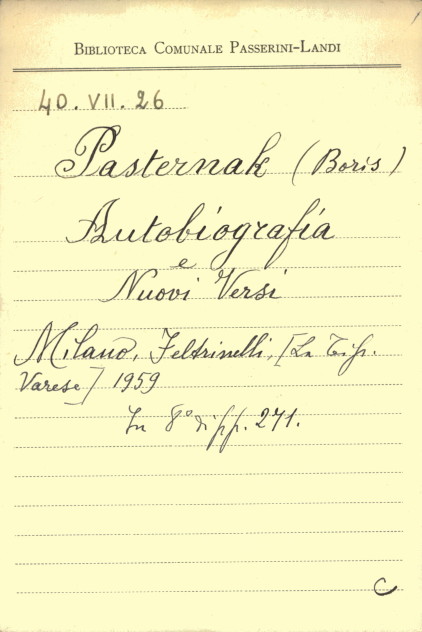 BIBLIOTECA COMUNALE PASSERINI-LANDI
40. VII. 26
Pasternak (Boris)
Autobiografia
e
Nuovi Versi
Milano, Feltrinelli, [La Tip.
Varese] 1959
In 8° di pp. 271.
C